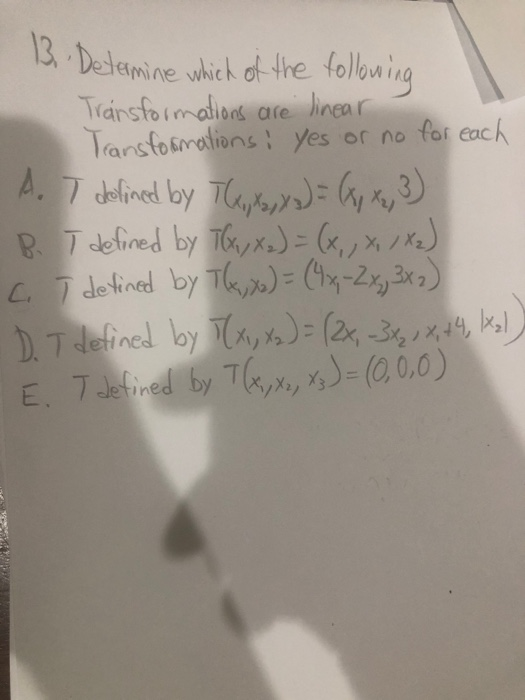 13. Determine which of the following
Transformations are linear
Transformations: yes or no for each
A. T defined by T(x₁,x₂,x₃)=(x₁,x₂,3)
B. T defined by T(x₁,x₂)=(x₁,x₁,x₂)
C. T defined by T(x₁,x₂)=(4x₁-2x₂,3x₂)
D. T defined by T(x₁,x₂)=(2x₁-3x₂,x₁+4,|x₂|)
E. T defined by T(x₁,x₂,x₃)=(0,0,0)